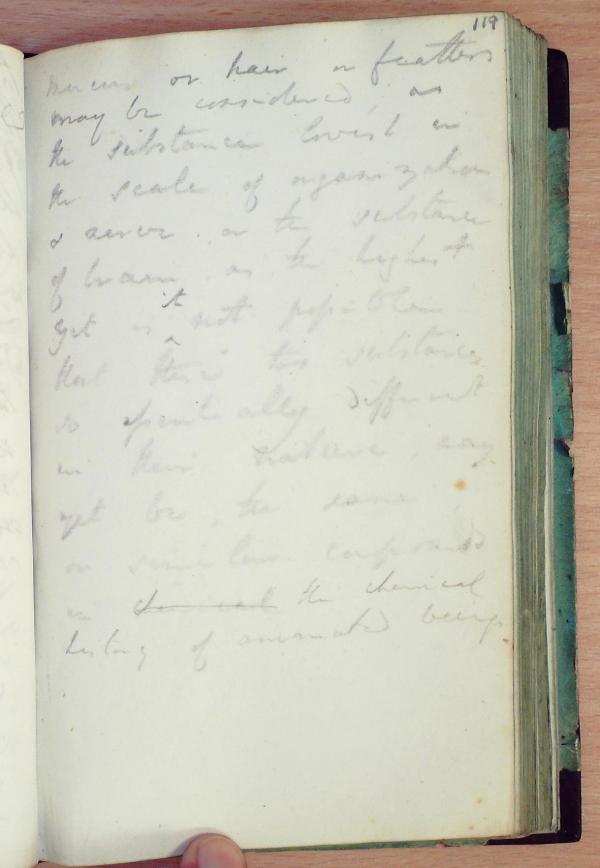 119
mucus or hair or feathers
may be considered, as
the substances lowest in
the scale of organization
& nerve or the substance
of brain as the highest
yet is it not possible
that these two substances
so essentially different
in their nature, may
yet be, the same
or similar compounds
in chemical the chemical
history of animated beings.